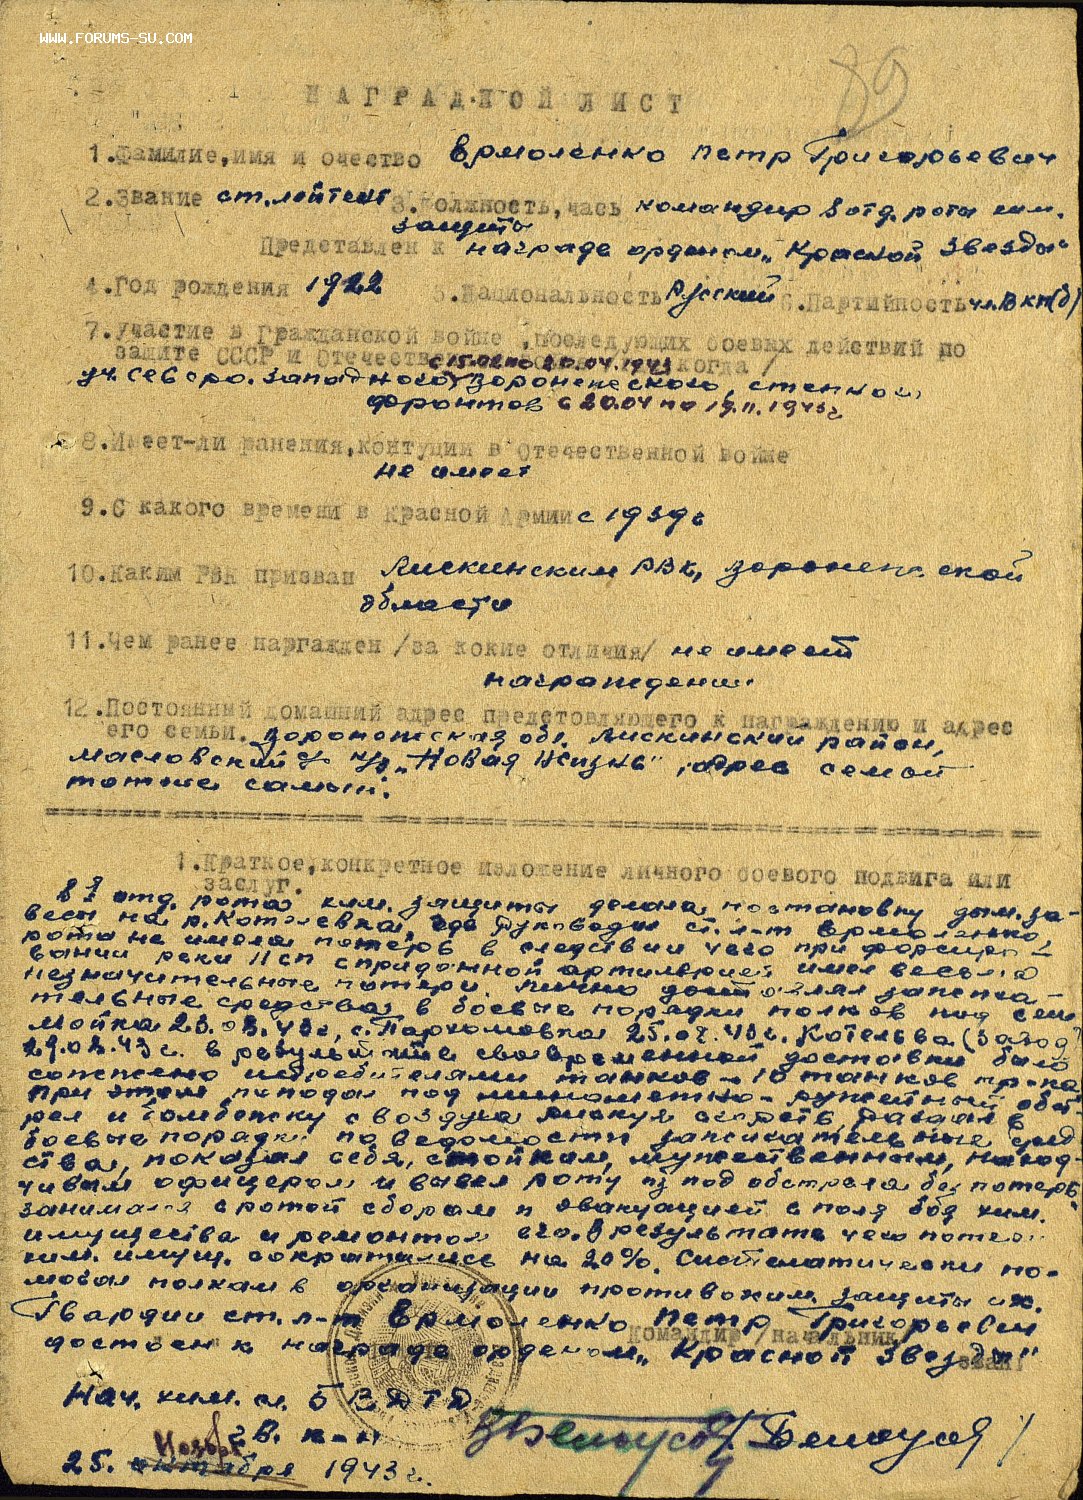 WWW.FORUMS-SU.COM
89
НАГРАДНОЙ ЛИСТ
1.Фамилие,имя и очество Ермоленко Петр Григорьевич
2.Звание ст.лейтент 3.Должность,часть командир 8 отд. роты хим.
защиты
Представлен к награде орденом „Красной Звезды"
4.Год рождения 1922 5.Национальность Русский 6.Партийность чл.ВКП(б)
7.Участие в Гражданской войне ,последующих боевых действий по
защите СССР и Отечеств когда /
с 15.02 по 20.04.1943
уч. северо. западного, воронежского, степног.
фронтов с 20.04 по 19.11.1943г
8.Имеет-ли ранения,контуции в Отечественной войне
не имеет
9.С какого времени в Красной Армии с 1939г
10.Каким РВК призван Лискинским РВК, Воронежской
области
11.Чем ранее наргажден /за кокие отличия/ не имеет
награждений.
12.Постоянный домашний адрес предстовляющего к награждению и адрес
его семьи. Воронежская обл. Лискинский район,
Масловский „Новая Жизнь", адрес семьи
тотже самый.
1.Краткое,конкретное изложение личного боевого подвига или
заслуг.
8я отд. рота хим. защиты делала постановку дым. за-
весы на р. Котелевка, где руководил ст. л-т Ермоленко,
рота не имела потерь в следствии чего при форсиро-
вании реки 11 сп с приданной артилерией имел весьма
незначительные потери. Лично доставлял зажига-
тельные средства в боевые порядки полков под
Мойка 23.08.43г, с. Пархомовка 25.08.43г. Котельва (Запад)
29.08.43г. в результате своевременной доставки было
сожжено истребителями танков - 10 танков пр-ка
При этом попадал под минометно-ружейный обст-
рел и бомбежку с воздуха рискуя раздал в
боевые порядки по ведомости зажигательные сред-
ства, показал себя, стойким, мужественным, наход-
чивым офицером и вывел роту из под обстрела без потерь
занимался с ротой сбором и эвакуацией с поля боя хим.
имущества и ремонтом его. В результате чего потери
хим. имущ. сократились на 20%. Систематически по-
могал полкам в организации противохим. защиты их.
Гвардии ст. л-т Ермоленко Петр Григорьевич
Командир /начальник/
достоен к награде орденом „Красной Звезды"
Нач. хим. сл. 5 ГВДТД
гв. к-н Белоусов / Белоусов /
Ноября
25. октября 1943г.